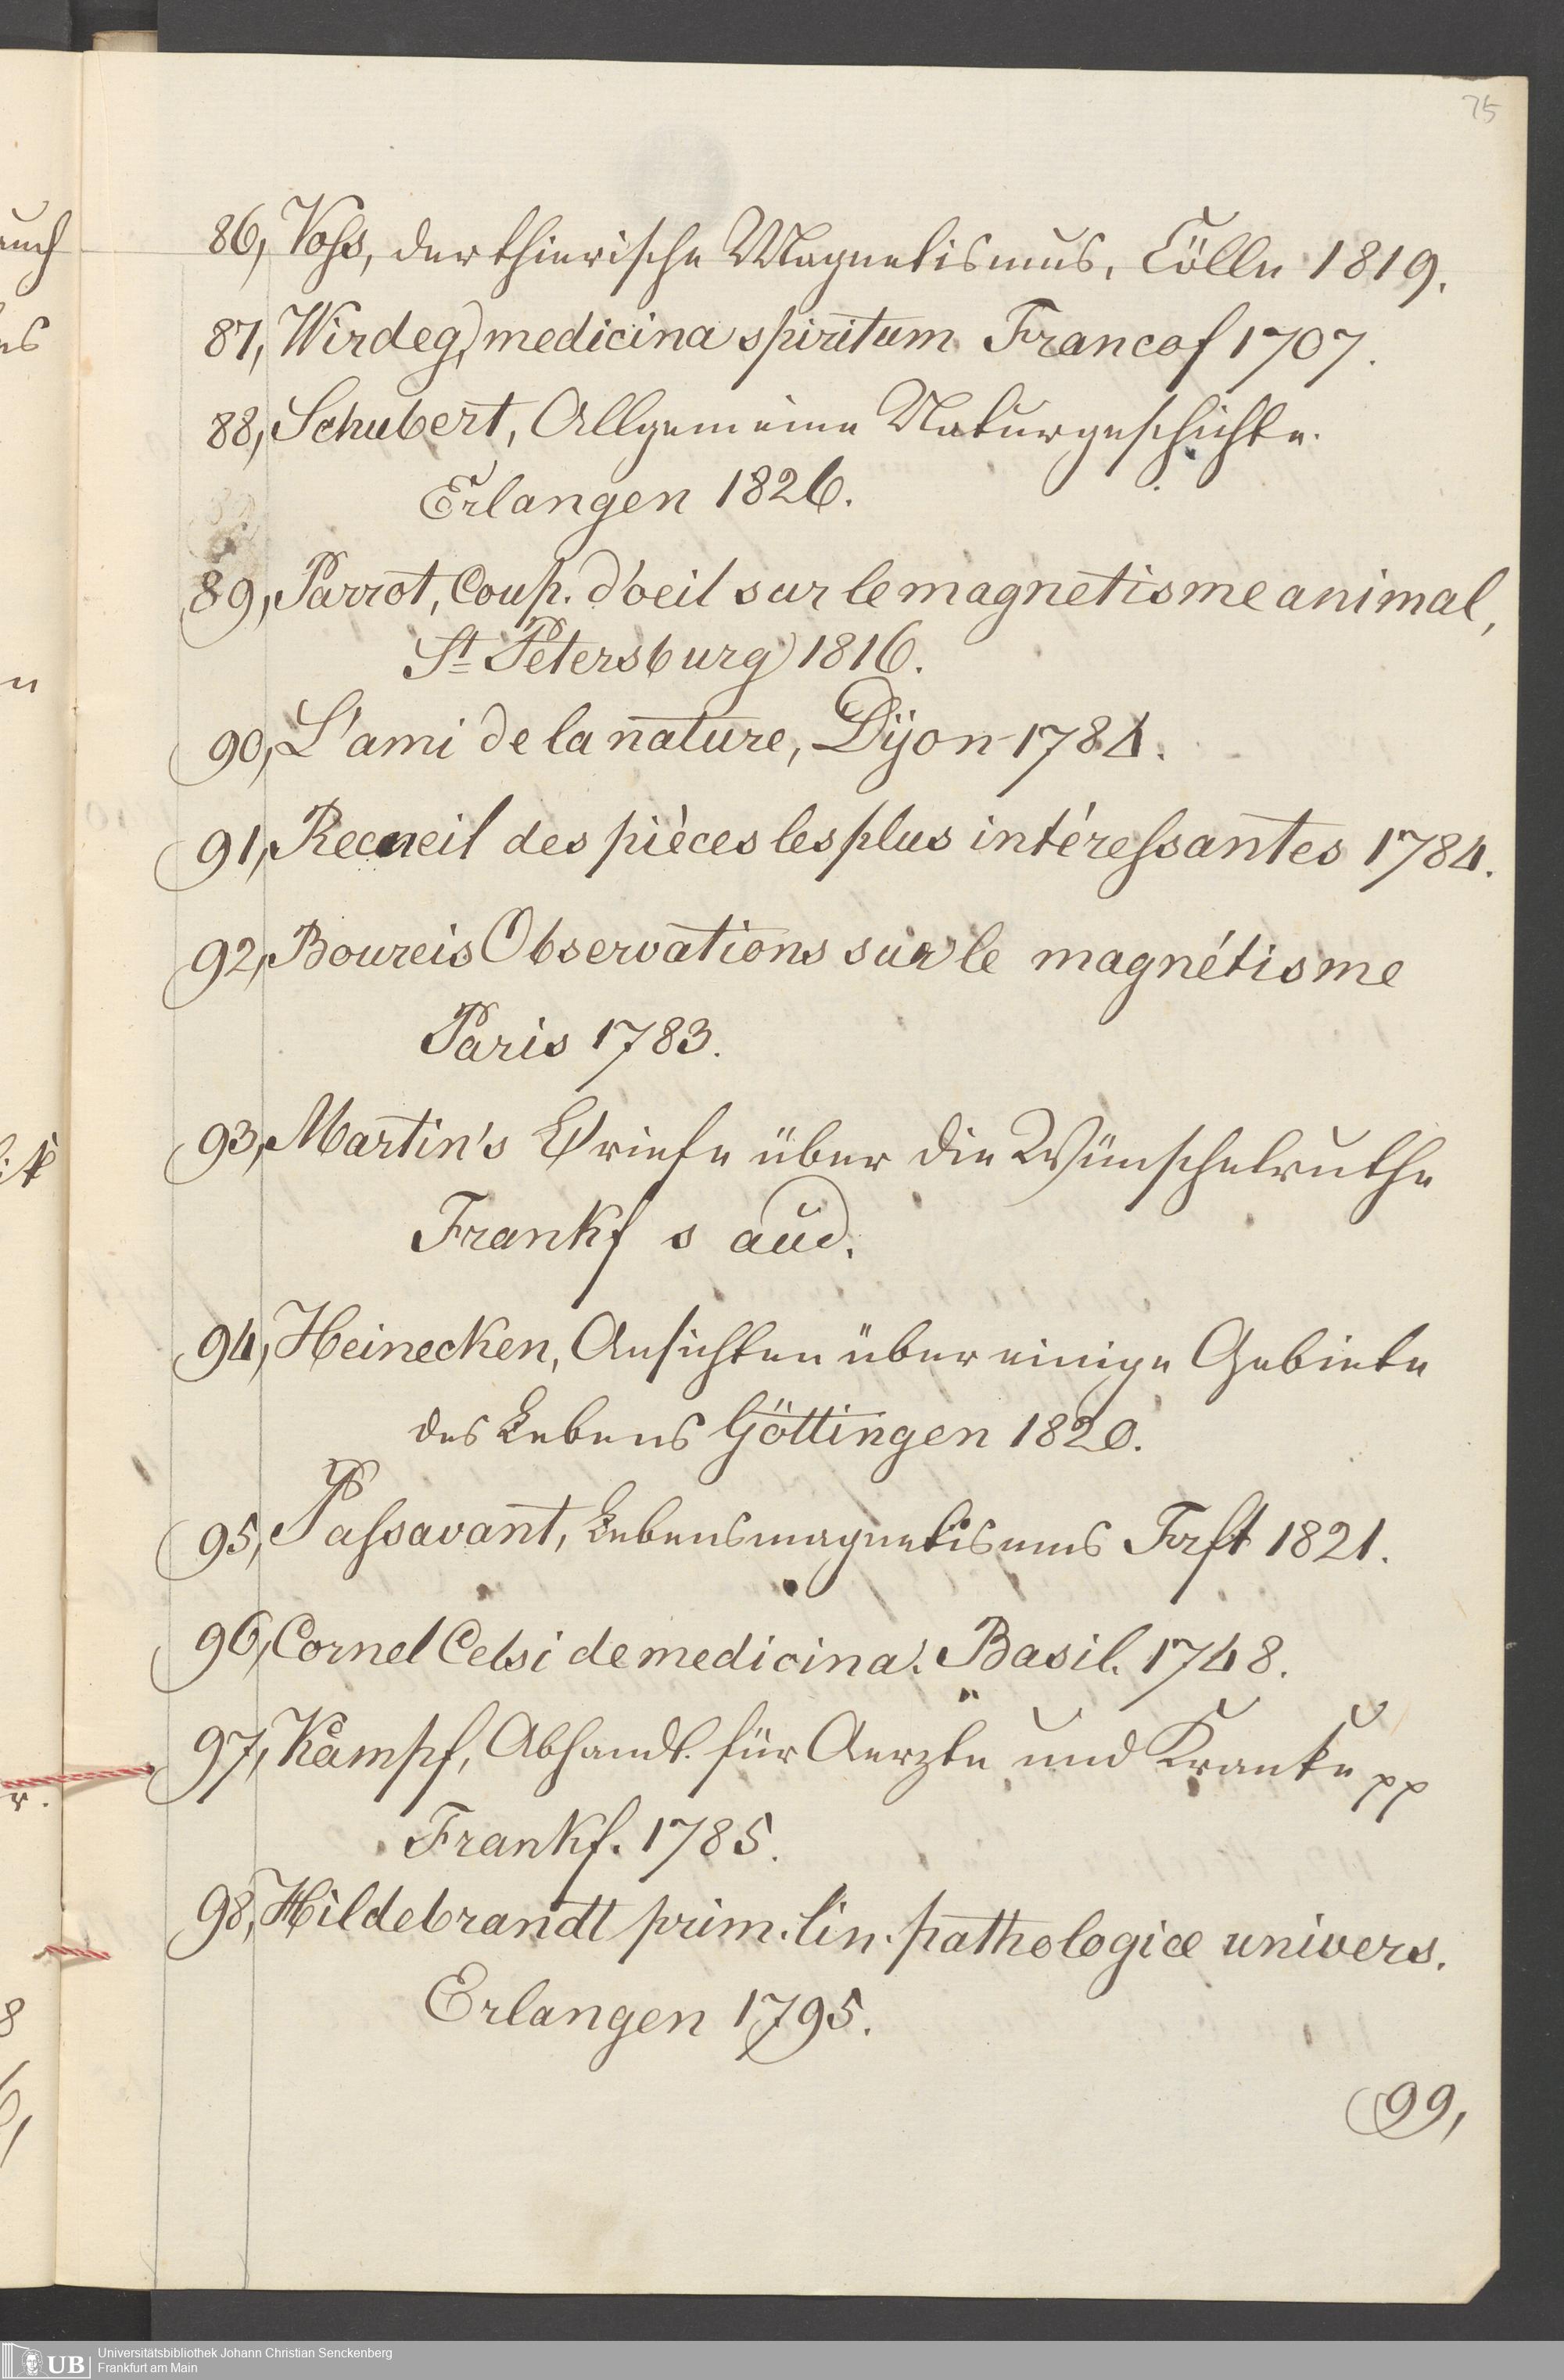 75
86, Voſs, der thierische Magnetismus, Cölln 1819.
87, Wirdeg, medicina spiritum Francof 1707.
88, Schubert, Allgemeine Naturgeschichte.
Erlangen 1826.
89, Parrot, Coup. d'oeil sur le magnetisme animal,
St Petersburg 1816.
90, L'ami de la nature, Dijon 1784.
91, Recueil des pièces les plus intéreſsantes 1784.
92, Boureis Observations sur le magnétisme
Paris 1783.
93, Martin's Briefe über die Wünschelruthe
Frankf s aud.
94, Heinecken, Ansichten über einige Gebiete
des Lebens Göttingen 1820.
95, Paſsavant, Lebensmagnetismus Frft 1821.
96, Cornel Celsi de medicina. Basil. 1748.
97, Kämpf, Abhandl. für Aerzte und Kranke pp
Frankf. 1785.
98, Hildebrandt prim. lin. pathologiæ univers.
Erlangen 1795.
99,
UB Universitätsbibliothek Johann Christian Senckenberg
Frankfurt am Main